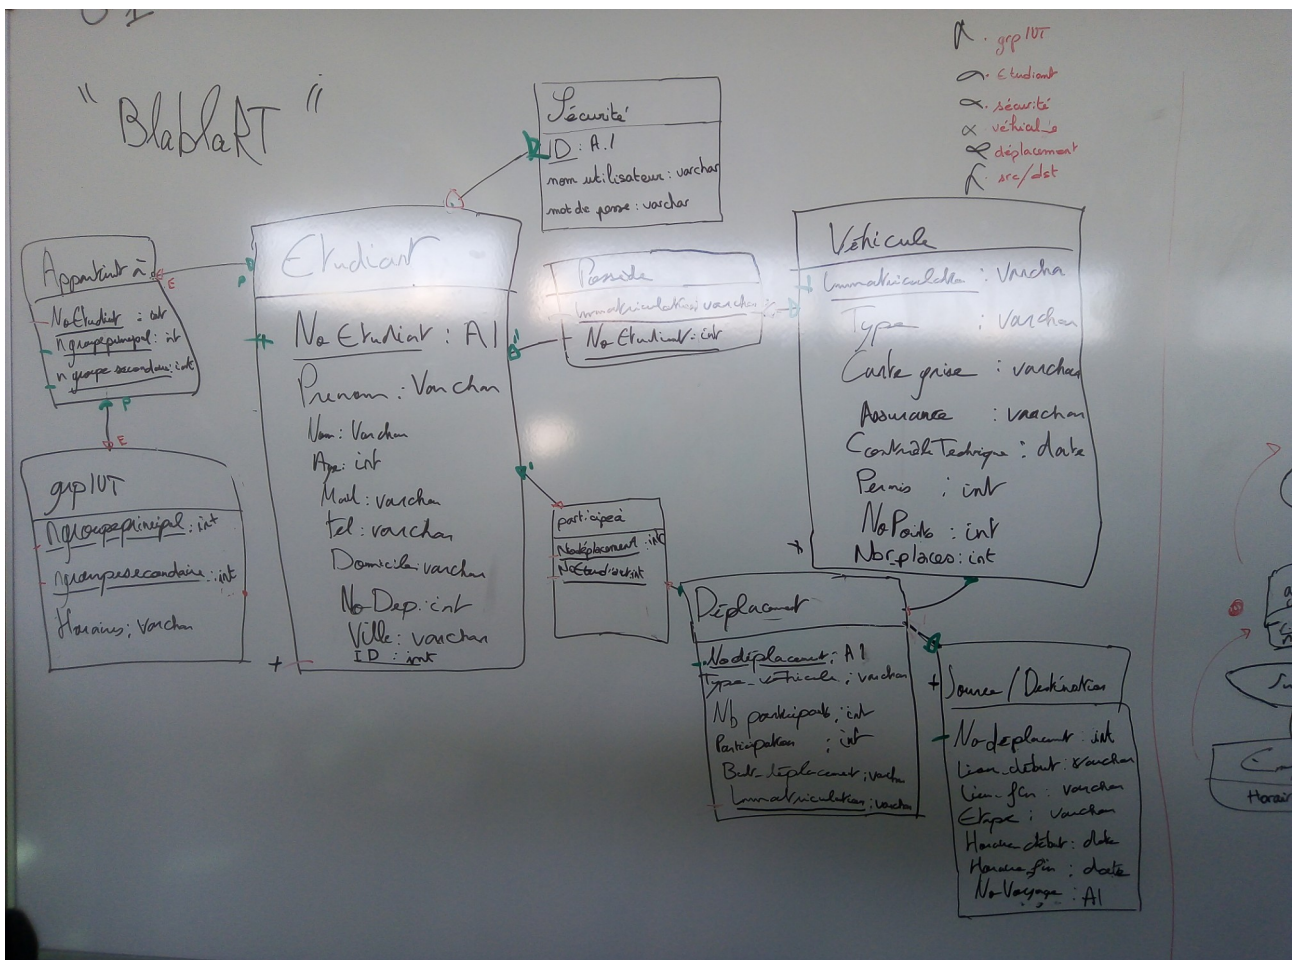 "BlablaRT"
grp IUT
Etudiant
sécurité
véhicule
déplacement
src/dst
Sécurité
ID : A.I
nom utilisateur : varchar
mot de passe : varchar
Appartient à
E
NoEtudiant : int
ngroupeprincipal : int
n groupe secondaire : int
P
E
grpIUT
ngroupeprincipal : int
ngroupesecondaire : int
Horaires : Varchar
P
Etudiant
No Etudiant : AI
Prenom : Varchar
Nom : Varchar
Age : int
Mail : varchar
tel : varchar
Domicile : varchar
No Dep : int
Ville : varchar
ID : int
Possède
Immatriculation : varchar
No Etudiant : int
Véhicule
Immatriculation : Varchar
Type : varchar
Carte grise : varchar
Assurance : varchar
Contrôle Technique : date
Permis : int
No Points : int
Nbr_places : int
participe à
Nodéplacement : int
NoEtudiant : int
Déplacement
No déplacement : AI
Type_véhicule : varchar
Nb participants : int
Participation : int
But_déplacement : varchar
Immatriculation : varchar
Source / Destination
No déplacement : int
Lieu_début : varchar
Lieu_fin : varchar
Etape : varchar
Horaire_début : date
Horaire_fin : date
No Voyage : AI
Horair